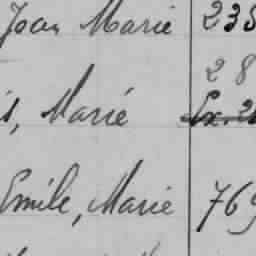 Jean Marie 235
28
Marié
Emile, Marie 769